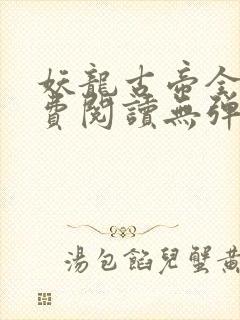 妖龍古帝全
費閱讀無彈
湯包餡兒蟹黃